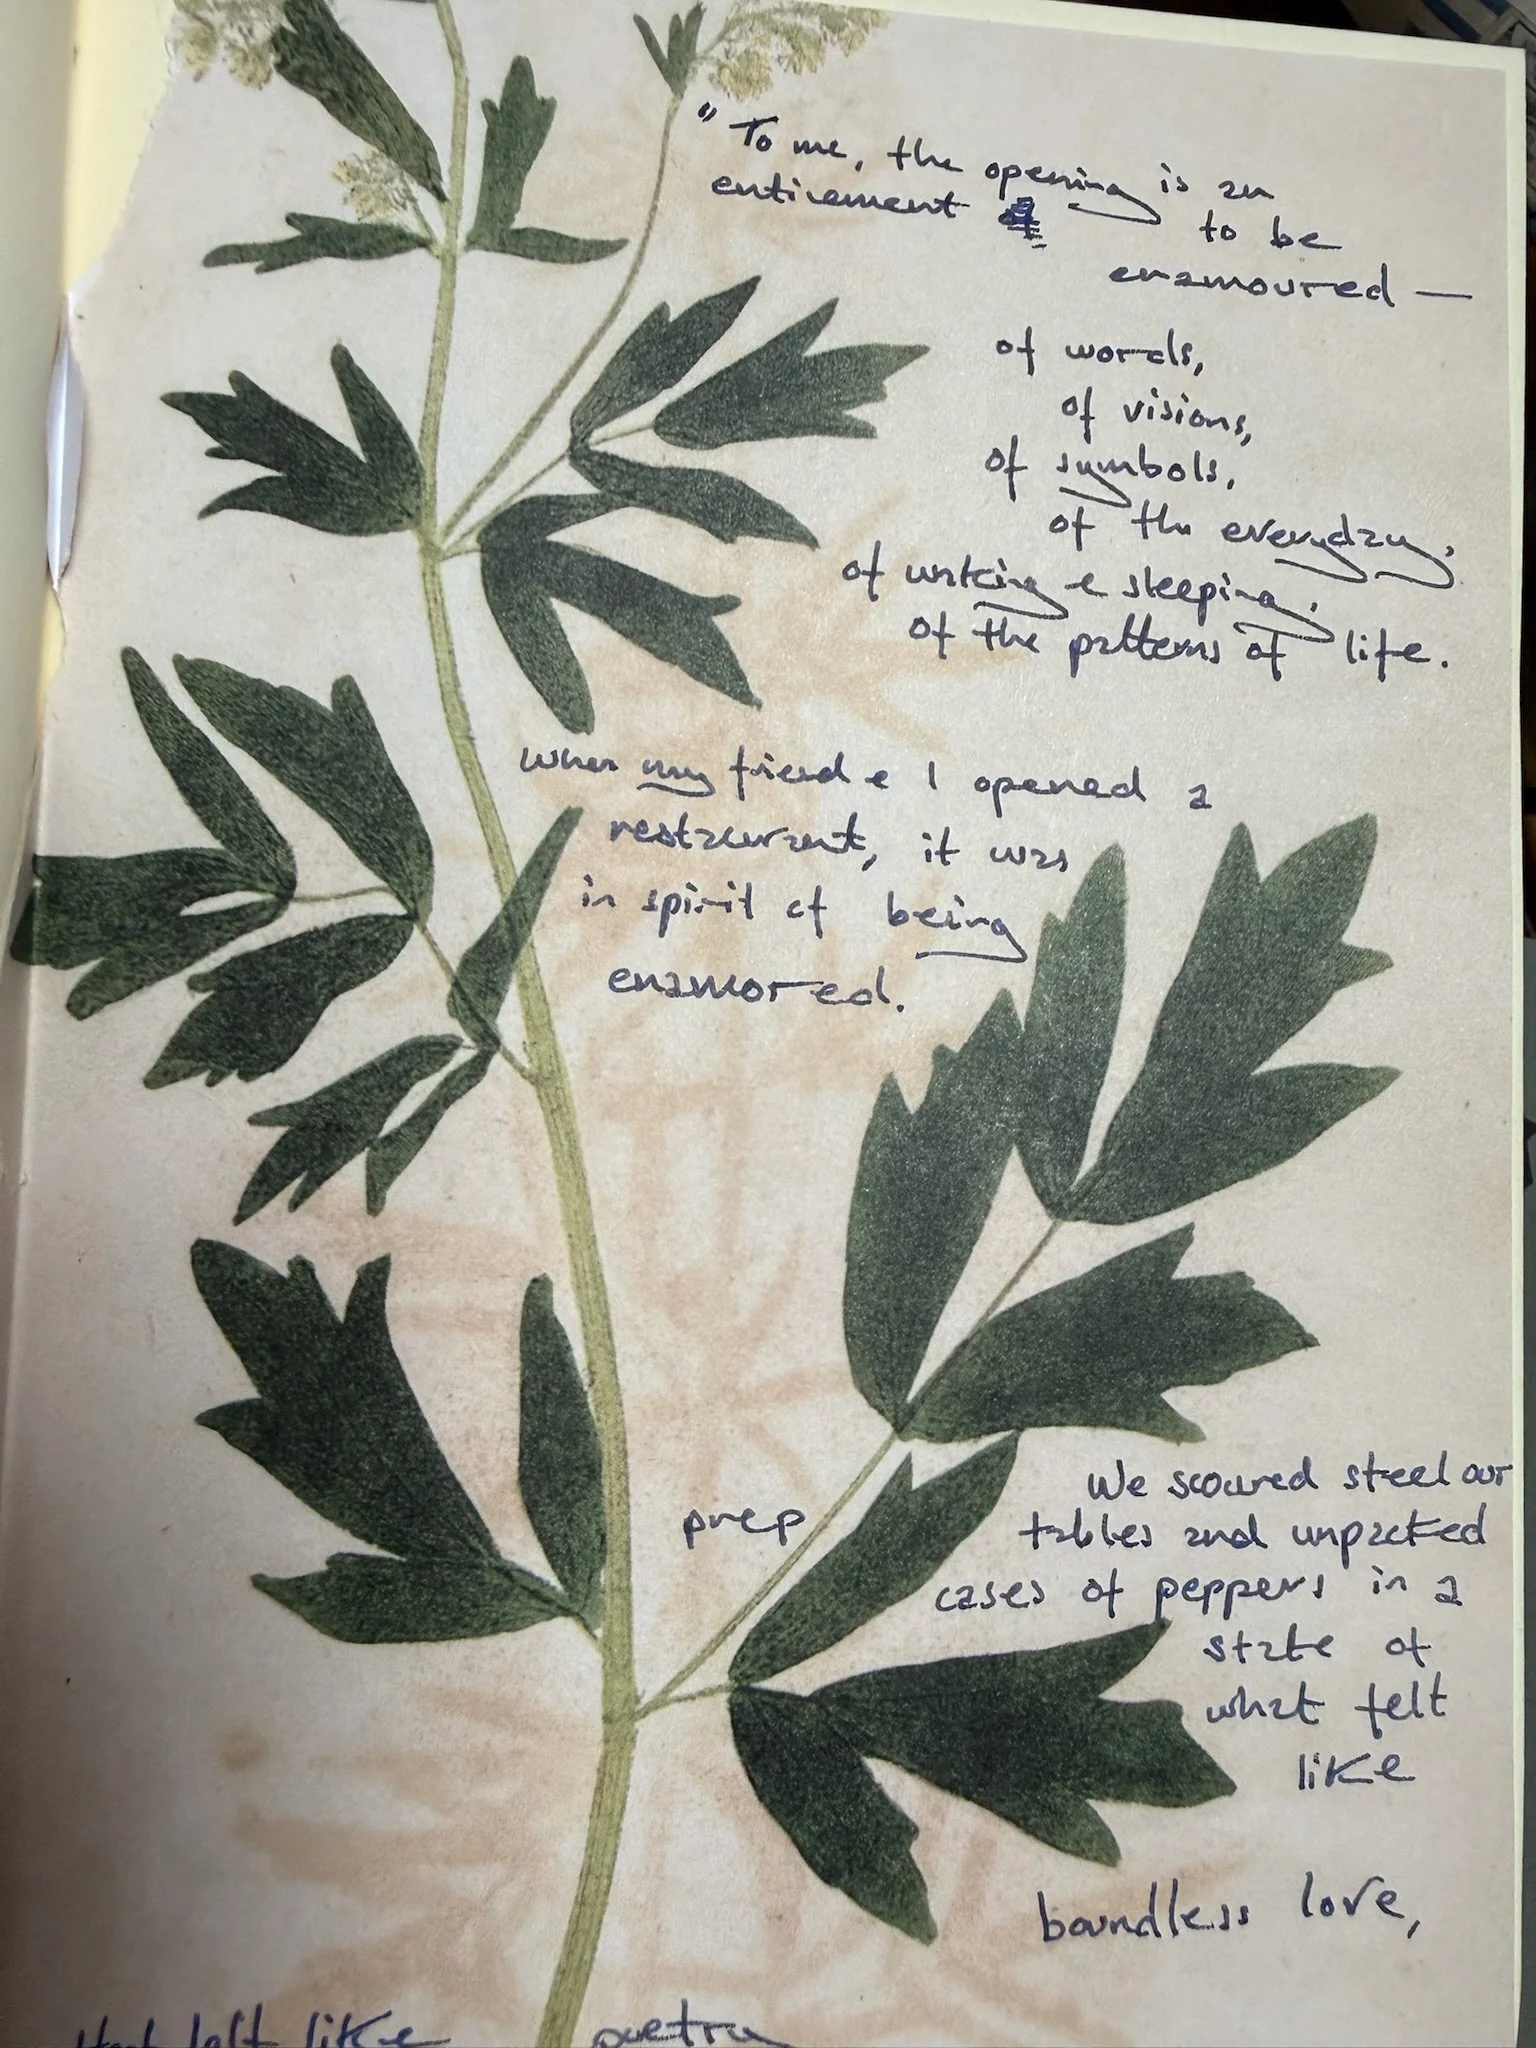 "To me, the opening is an
enticement to be
enamoured —
of words,
of visions,
of symbols,
of the everyday,
of waking & sleeping,
of the patterns of life.
when my friend & I opened a
restaurant, it was
in spirit of being
enamored.
We scoured steel our
prep tables and unpacked
cases of peppers in a
state of
what felt
like
boundless love,
that felt like poetry